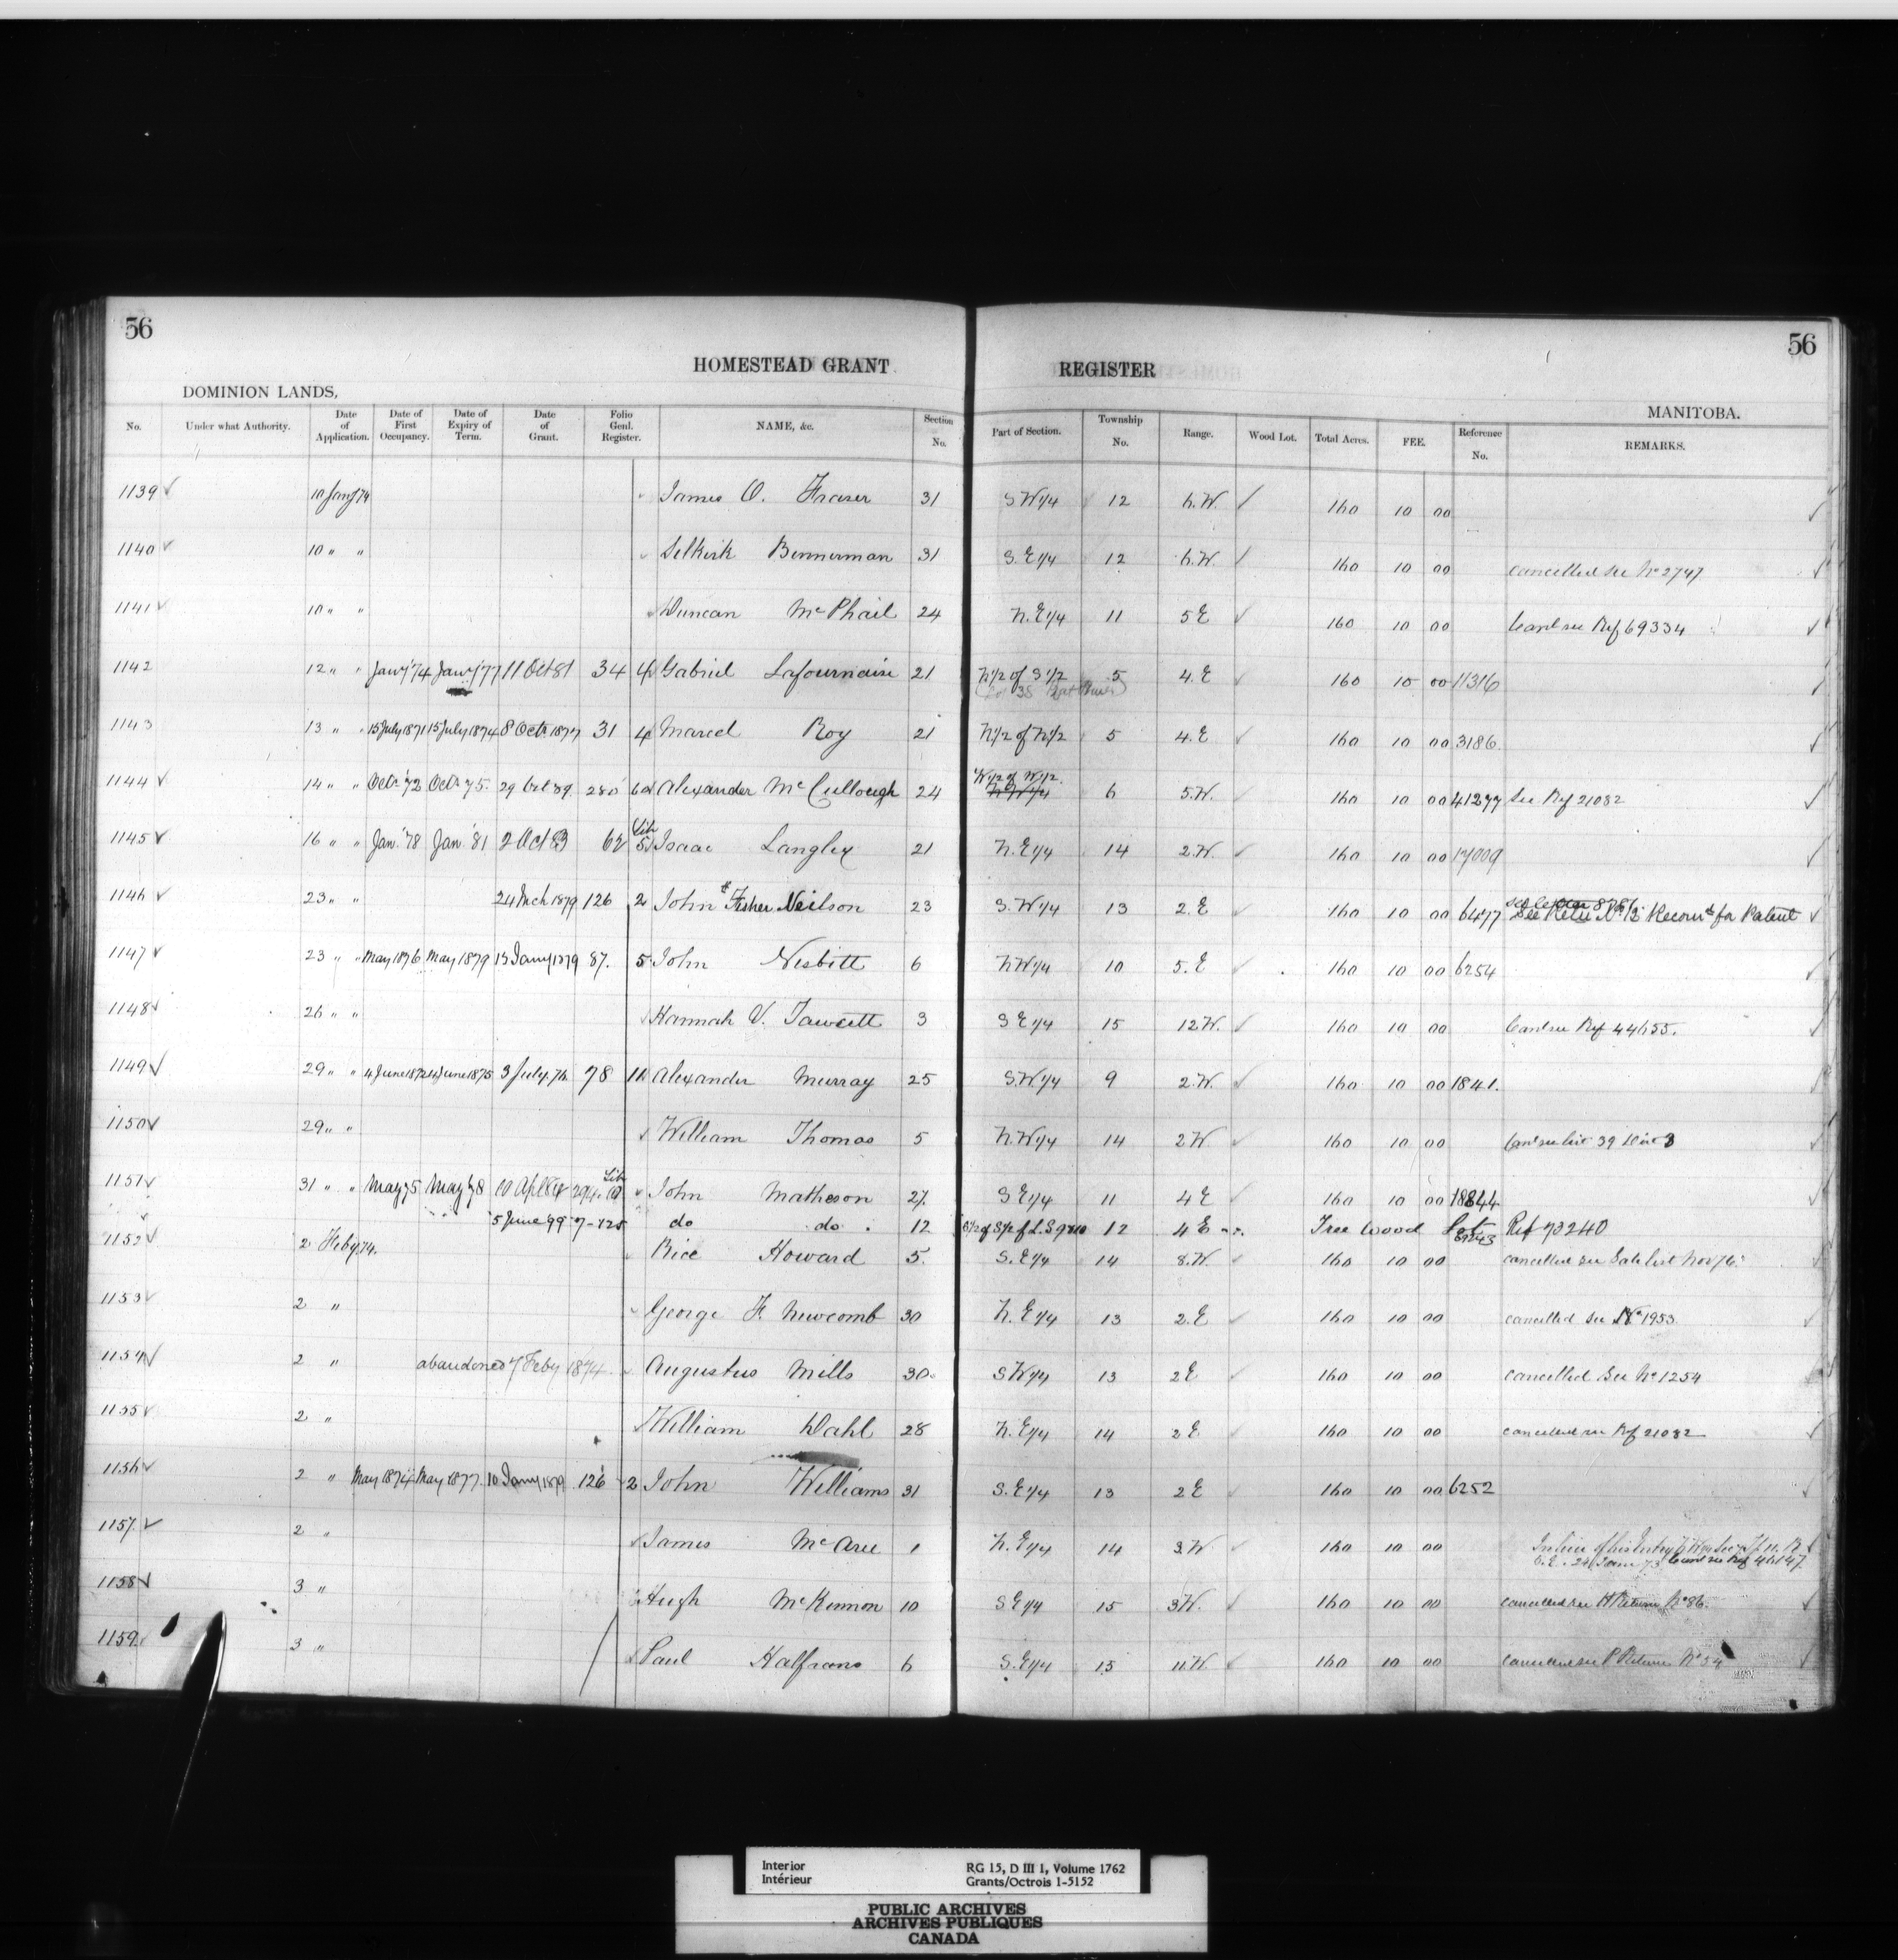 56 56
HOMESTEAD GRANT REGISTER
DOMINION LANDS, MANITOBA.
No. Under what Authority. Date of Application. Date of First Occupancy. Date of Expiry of Term. Date of Grant. Folio Genl. Register. NAME, &c. Section No. Part of Section. Township No. Range. Wood Lot. Total Acres. FEE. Reference No. REMARKS.
1139 10 Jany 74 James O. Fraser 31 S W 1/4 12 6.W. 160 10 00
1140 10 " " Selkirk Bennerman 31 S. E 1/4 12 6.W. 160 10 00 cancelled see No 2747
1141 10 " " Duncan McPhail 24 N. E 1/4 11 5 E 160 10 00 Canl see Ref 69334
1142 12 " " Jany '74 Jany '77 11 Oct 81 34 4 Gabriel Lafournaise 21 N 1/2 of S 1/2 5 4. E 160 10 00 11316
(Lot 38 Rat River)
1143 13 " " 15 July 1871 15 July 1874 8 Octr 1877 31 4 Marcel Roy 21 N 1/2 of N 1/2 5 4. E 160 10 00 3186
1144 14 " " Octr '72 Octr 75. 29 Oct 89 280 Alexander McCullough 24 W 1/2 of W 1/2. N W 1/4 6 5.W. 160 10 00 41277 See Ref 21082
1145 16 " " Jan. '78 Jan. '81 2 Oct 83 62 Lib 5 Isaac Langley 21 N. E 1/4 14 2.W. 160 10 00 17009
1146 23 " " 24 Mch 1879 126 2 John Fisher Neilson 23 S. W 1/4 13 2. E 160 10 00 6477 Recomd for Patent
1147 23 " " May 1876 May 1879 13 Jany 1879 87. 5 John Nesbitt 6 N W 1/4 10 5. E 160 10 00 6254
1148 26 " " Hannah V. Fawcett 3 S E 1/4 15 12 W. 160 10 00 Canl see Ref 44655.
1149 29 " " 4 June 1872 4 June 1875 3 July 76 78 Alexander Murray 25 S. W 1/4 9 2. W. 160 10 00 1841.
1150 29 " " William Thomas 5 N. W 1/4 14 2 W 160 10 00 39
1151 31 " " May 75 May 78 10 Apl 84 294 Lib John Matheson 27. S E 1/4 11 4 E 160 10 00 18844
5 June '99 7-125 do do. 12 12 4 E Free Wood Lot Ref 73240
1152 2 Feby 74. Rice Howard 5. S. E 1/4 14 8. W. 160 10 00 cancelled see Sale list Nov 76
1153 2 " George F. Newcomb 30 N. E 1/4 13 2. E 160 10 00 cancelled see No 1953
1154 2 " abandoned 7 Feby 1874. Augustus Mills 30. S W 1/4 13 2 E 160 10 00 cancelled See No 1254
1155 2 " William Dahl 28 N. E 1/4 14 2 E 160 10 00 cancelled see Ref 21082
1156 2 " May 1874 May 1877. 10 Jany 1879 126 2 John Williams 31 S. E 1/4 13 2 E 160 10 00 6252
1157. 2 " James McAree 1 N. E 1/4 14 3. W 160 10 00 In lieu of his Entry
Canl see Ref 46147
1158 3 " Hugh McKinnon 10 S E 1/4 15 3 W. 160 10 00 cancelled see H Return No 86.
1159 3 " Paul Halfrans 6 S. E 1/4 15 11. W. 160 10 00 cancelled see P Return No 54
Interior RG 15, D III 1, Volume 1762
Intérieur Grants/Octrois 1-5152
PUBLIC ARCHIVES
ARCHIVES PUBLIQUES
CANADA